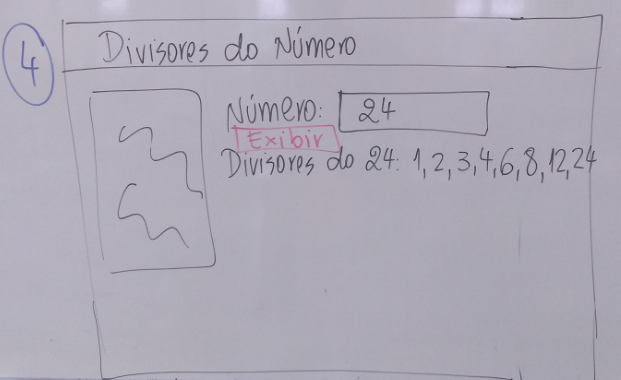 4
Divisores do Número
Número: 24
Exibir
Divisores do 24: 1, 2, 3, 4, 6, 8, 12, 24